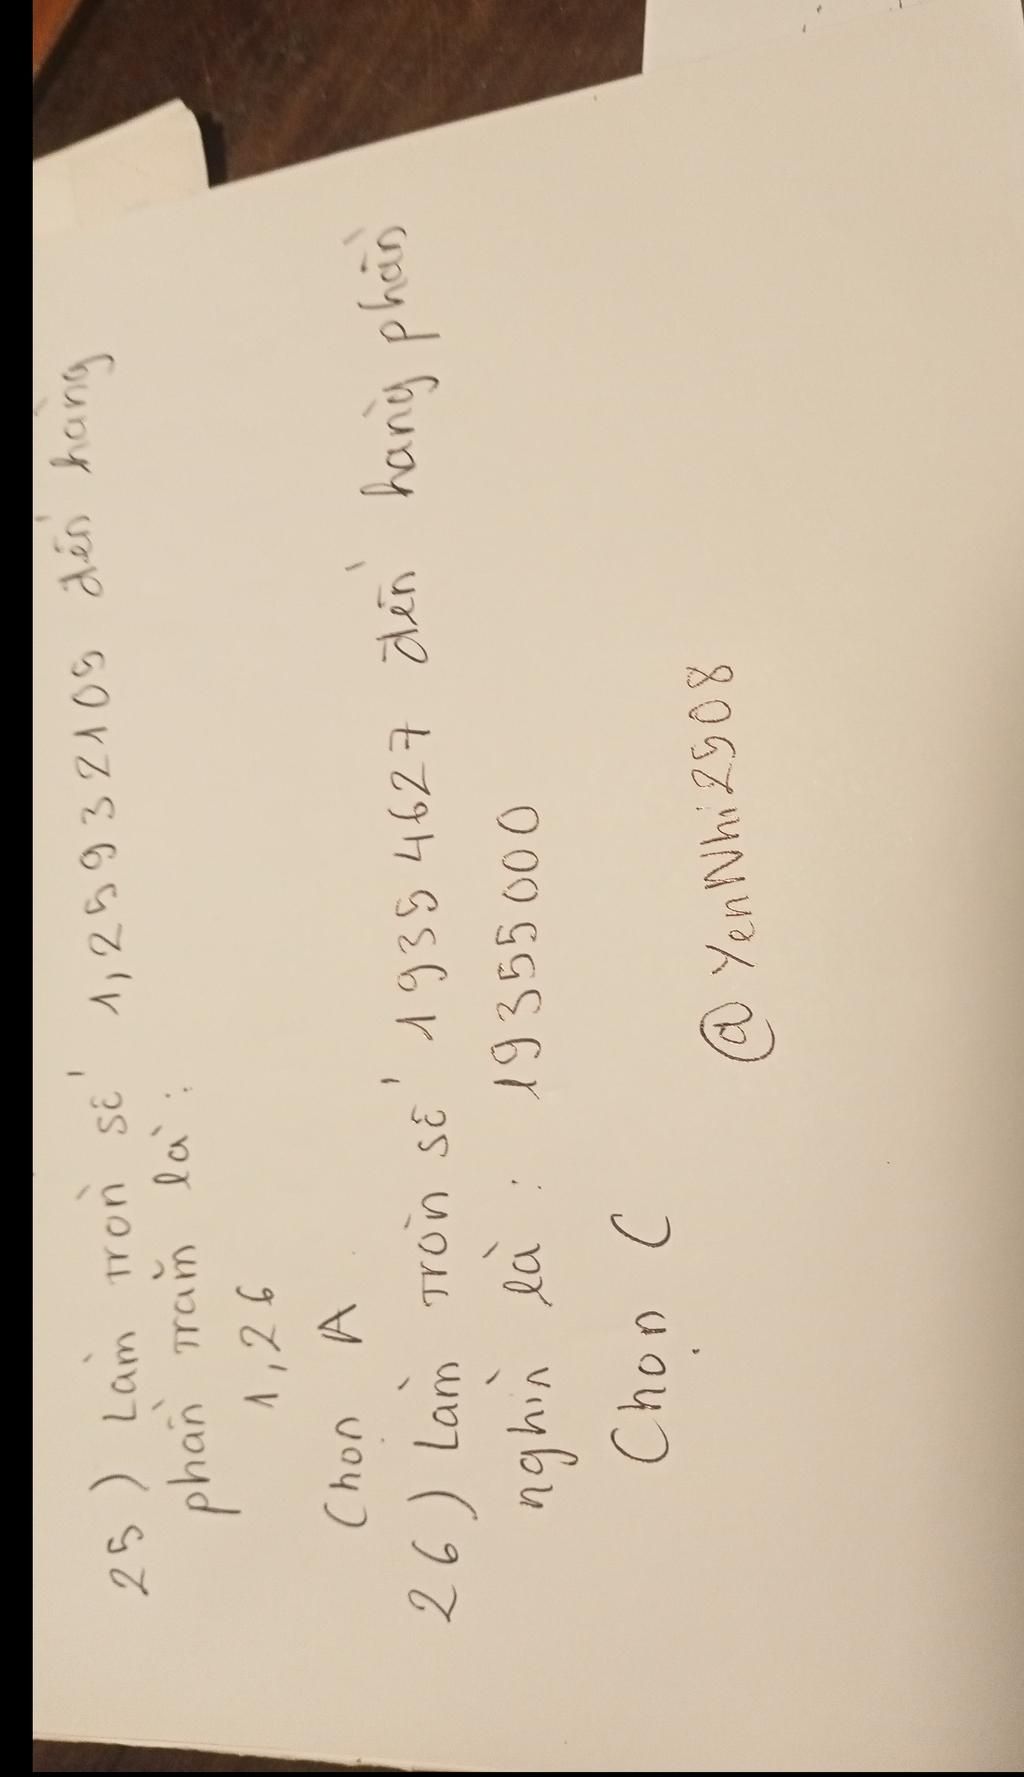 25) Làm tròn số 1,25932105 đến hàng
phần trăm là:
1,26
Chọn A
26) Làm tròn số 19354627 đến hàng phần
nghìn là: 19355000
Chọn C
@YenNhi2508